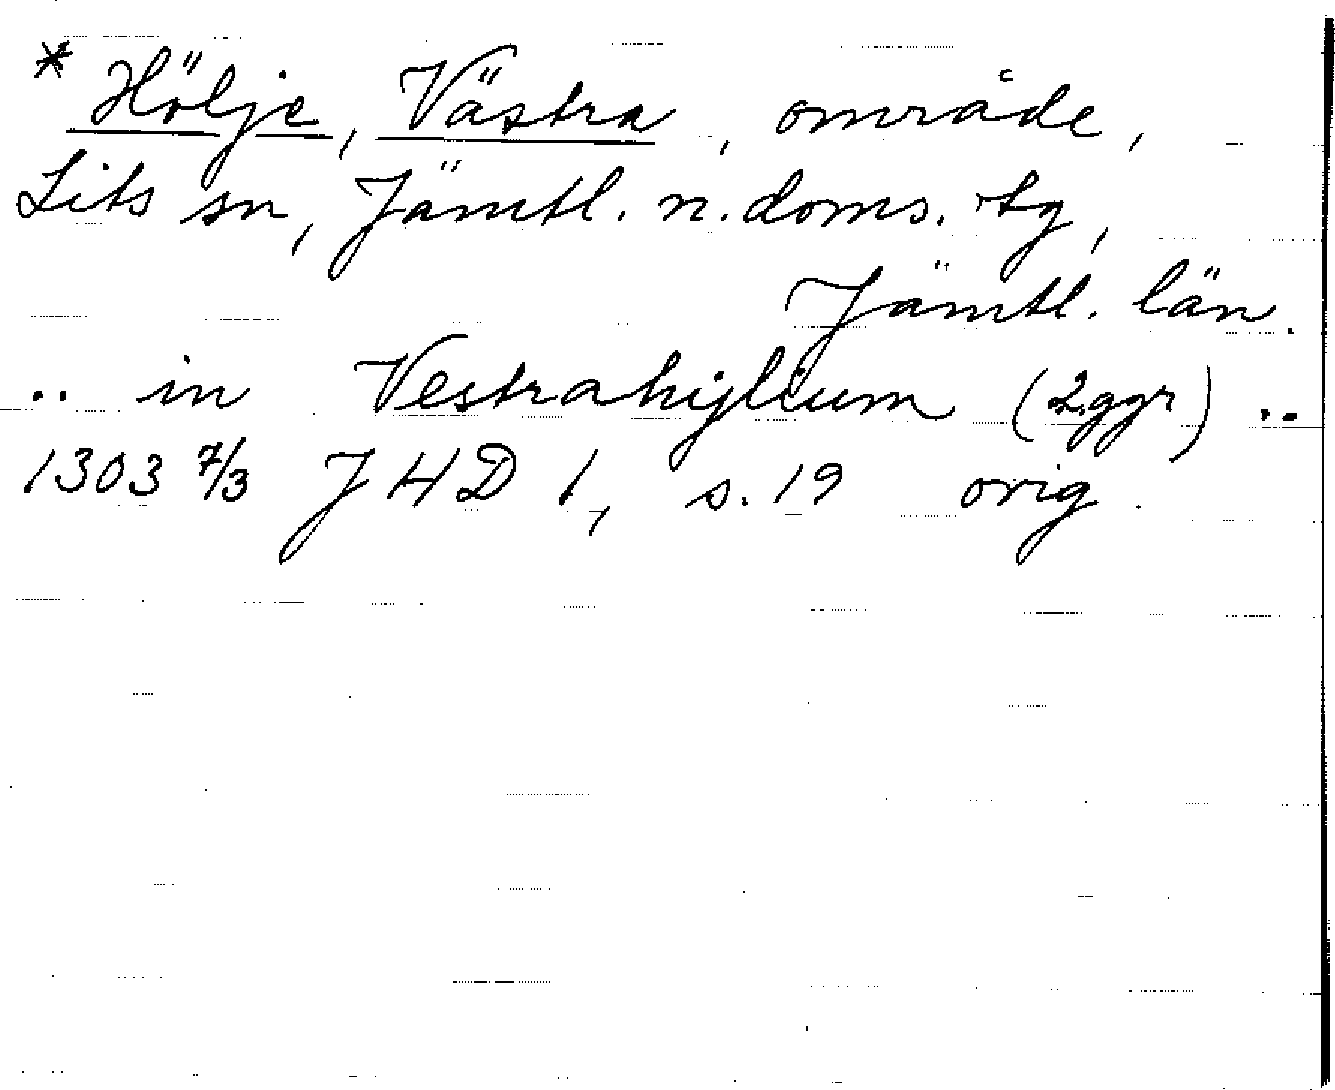 * Hölje, Västra, område,
Lits sn, Jämtl. n. doms. tg,
Jämtl. län.
.. in Vestrahylium (2 ggr) ..
1303 7/3 JHD 1, s. 19 orig.